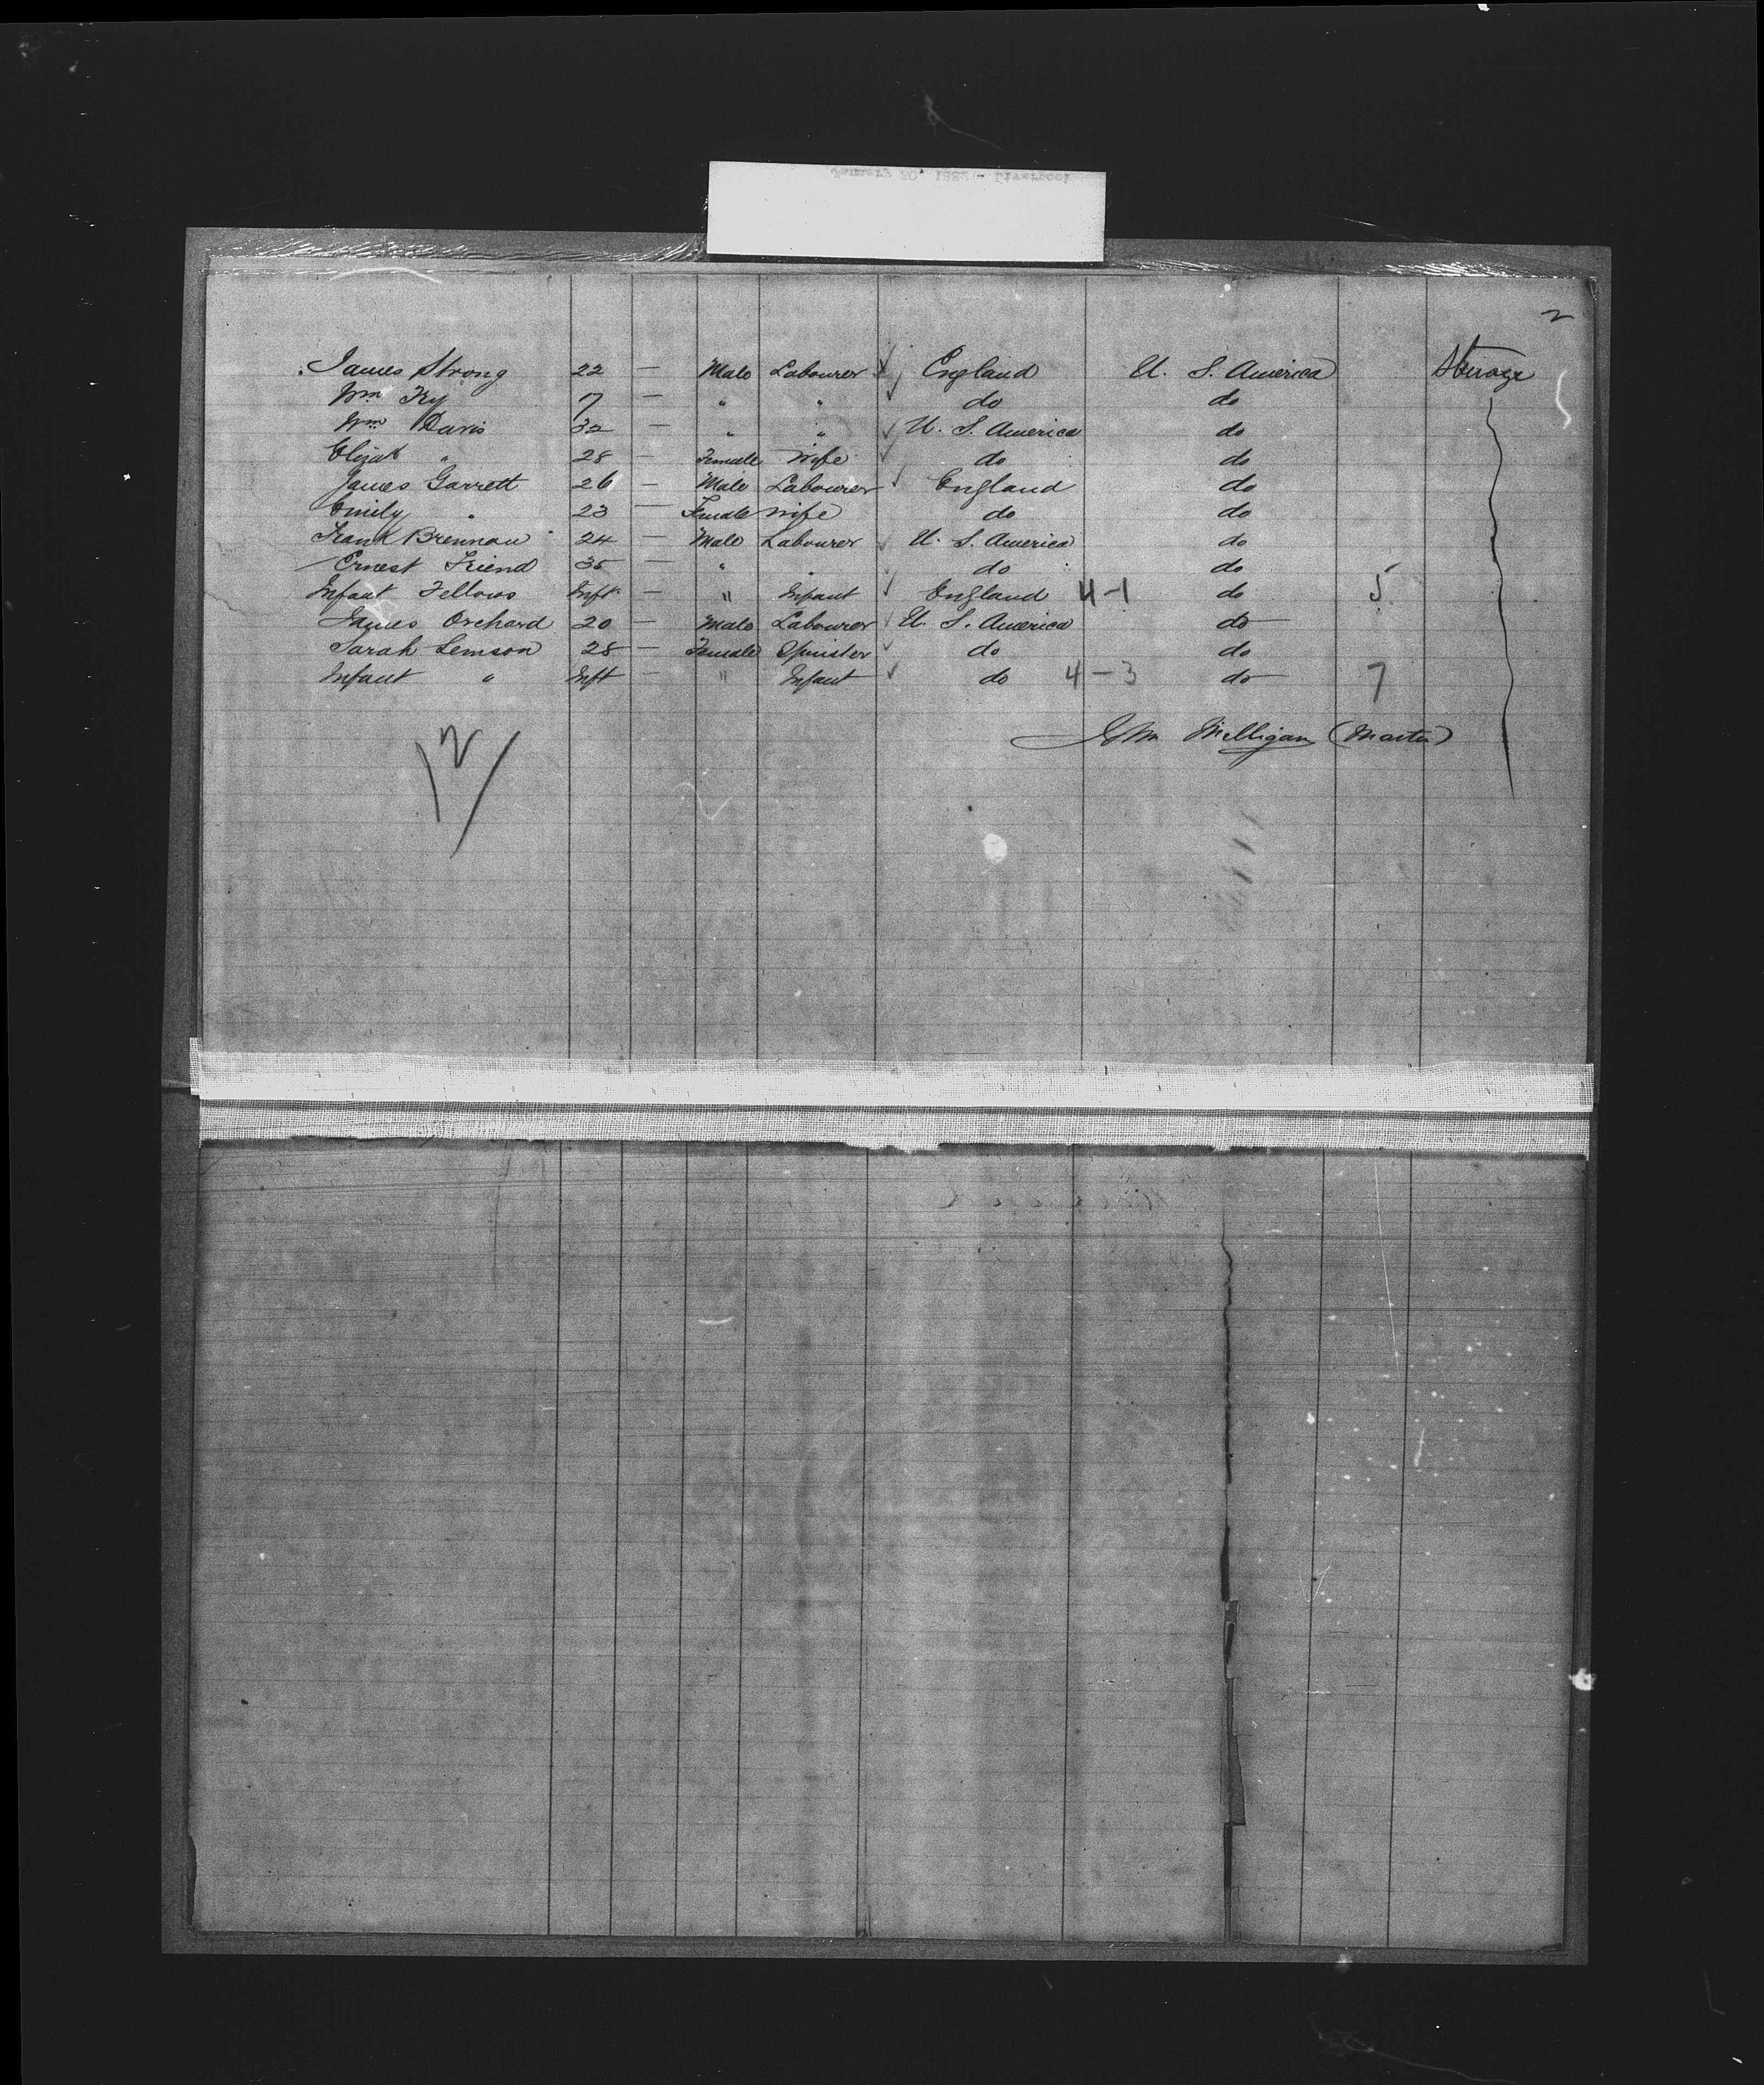 2
James Strong 22 — Male Labourer ✓ England U. S. America Steerage
Wm Fry 7 — " " ✓ do do
Wm Davis 32 — " " ✓ U. S. America do
Elizab " 28 — Female Wife ✓ do do
James Garrett 26 — Male Labourer ✓ England do
Emily " 23 — Female Wife do do
Frank Brennan 24 — Male Labourer ✓ U. S. America do
Ernest Friend 35 — " " do do
Infant Fellows Inft — " Infant ✓ England 4-1 do 5
James Orchard 20 — Male Labourer ✓ U. S. America do
Sarah Lemson 28 — Female Spinster ✓ do do
Infant " Inft — " Infant ✓ do 4-3 do 7
Milligan (Master)
12/